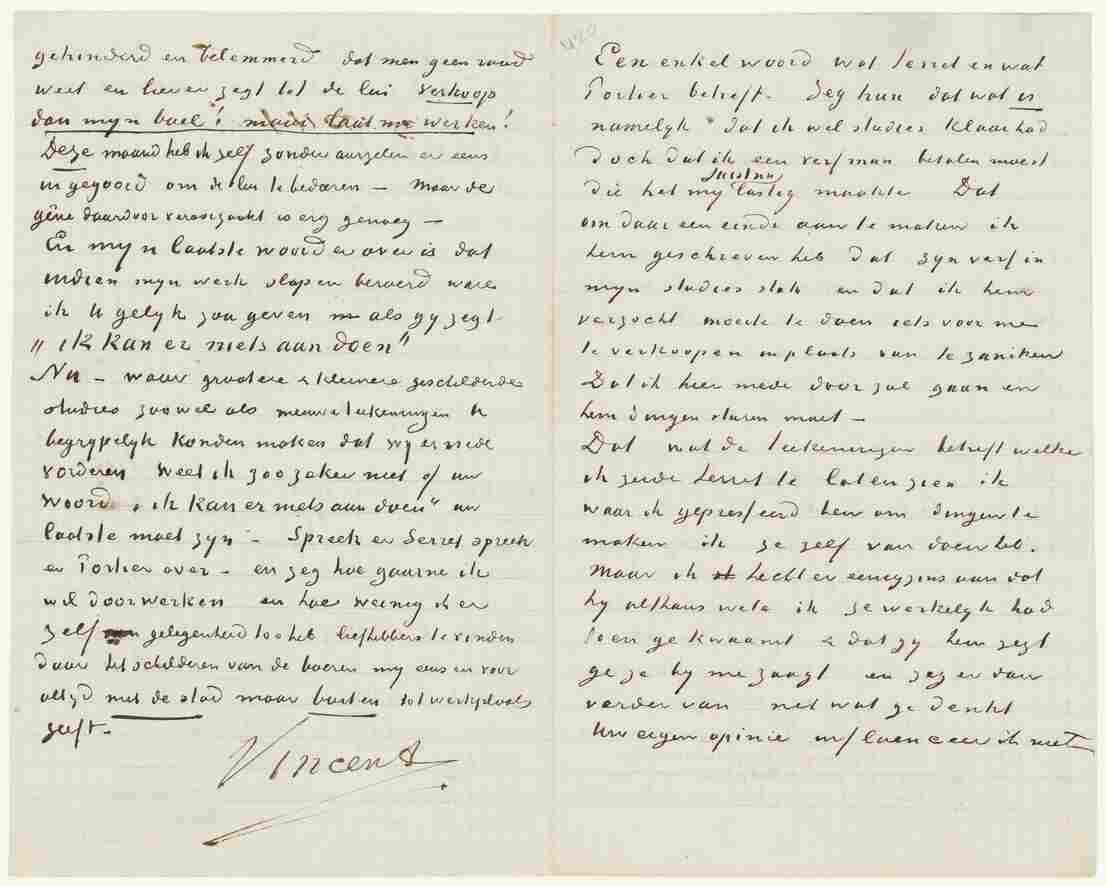 gehinderd en belemmerd dat men geen raad
weet en liever zegt tot de lui verkoop
dan mijn boel! maar laat me werken!
Deze maand heb ik zelf zonder aarzelen er eens
in gegooid om de lui te bedaren – Maar de
gêne daardoor veroorzaakt is erg genoeg –
En mijn laatste woord er over is dat
indien mijn werk slap en beroerd ware
ik U gelijk zou geven als gij zegt
„ik kan er niets aan doen"
Nu – waar grootere & kleinere geschilderde
studies zoowel als nieuwe teekeningen U
begrijpelijk konden maken dat wij er mede
vorderen weet ik zoo zeker niet of uw
woord „ik kan er niets aan doen" uw
laatste moet zijn – Spreek er Serret spreek
er Portier over – en zeg hoe gaarne ik
wil doorwerken en hoe weinig ik er
zelf gelegenheid toe heb liefhebbers te vinden
daar het schilderen van de boeren mij eens en voor
altijd niet de stad maar buiten tot werkplaats
geeft.
Vincent
420
Een enkel woord wat Serret en wat
Portier betreft. Zeg hun dat wat is
namelijk dat ik wel studies klaar had
doch dat ik een verfman betalen moest
die het mij lastig maakte Dat
om daar een einde aan te maken ik
hem geschreven heb dat zijn verf in
mijn studies stak en dat ik hem
verzocht moeite te doen iets voor me
te verkoopen in plaats van te zaniken
Dat ik hier mede door zal gaan en
hem dingen sturen moet –
Dat wat de teekeningen betreft welke
ik zeide Serret te laten zien ik
waar ik geprefereerd hem om dingen te
maken ik ze zelf van doen heb.
Maar ik hecht er eenigzins aan dat
hij althans wete ik ze werkelijk had
toen ge kwaamt & dat gij hem zegt
ge ze bij me zaagt en zeg er dan
verder van net wat ge denkt
Uw eigen opinie influenceer ik niet